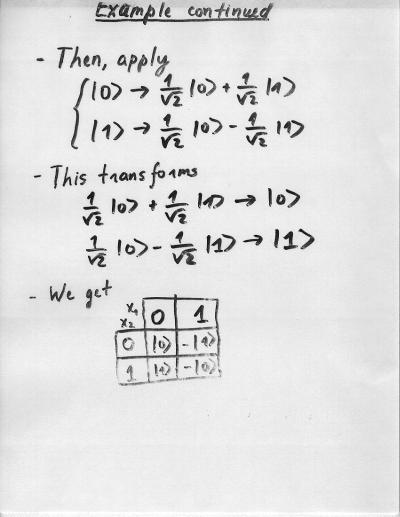 Example continued
- Then, apply
|0> → 1/√2 |0> + 1/√2 |1>
|1> → 1/√2 |0> - 1/√2 |1>
- This transforms
1/√2 |0> + 1/√2 |1> → |0>
1/√2 |0> - 1/√2 |1> → |1>
- We get
x₁ 0 1
x₂
0 |0> -|1>
1 |1> -|0>